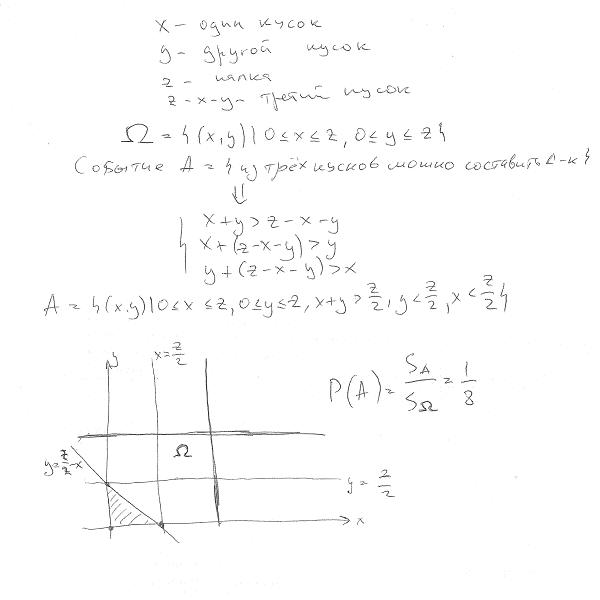 x – один кусок
y – другой кусок
z – палка
z-x-y – третий кусок
Ω = {(x,y) | 0≤x≤z, 0≤y≤z}
Событие A = {из трёх кусков можно составить Δ-к}
⇓
{ x+y > z-x-y
x+(z-x-y) > y
y+(z-x-y) > x
A = {(x,y) | 0≤x≤z, 0≤y≤z, x+y > z/2, y < z/2, x < z/2}
y
x = z/2
P(A) = S_A/S_Ω = 1/8
Ω
y = z/2 - x
y = z/2
x